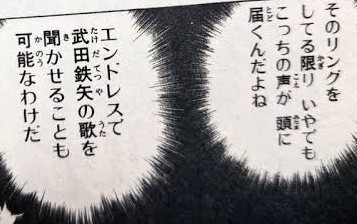 そのリングを
してる限り いやでも
こっちの声が 頭に
届くんだよね
エンドレスで
武田鉄矢の歌を
聞かせることも
可能なわけだ